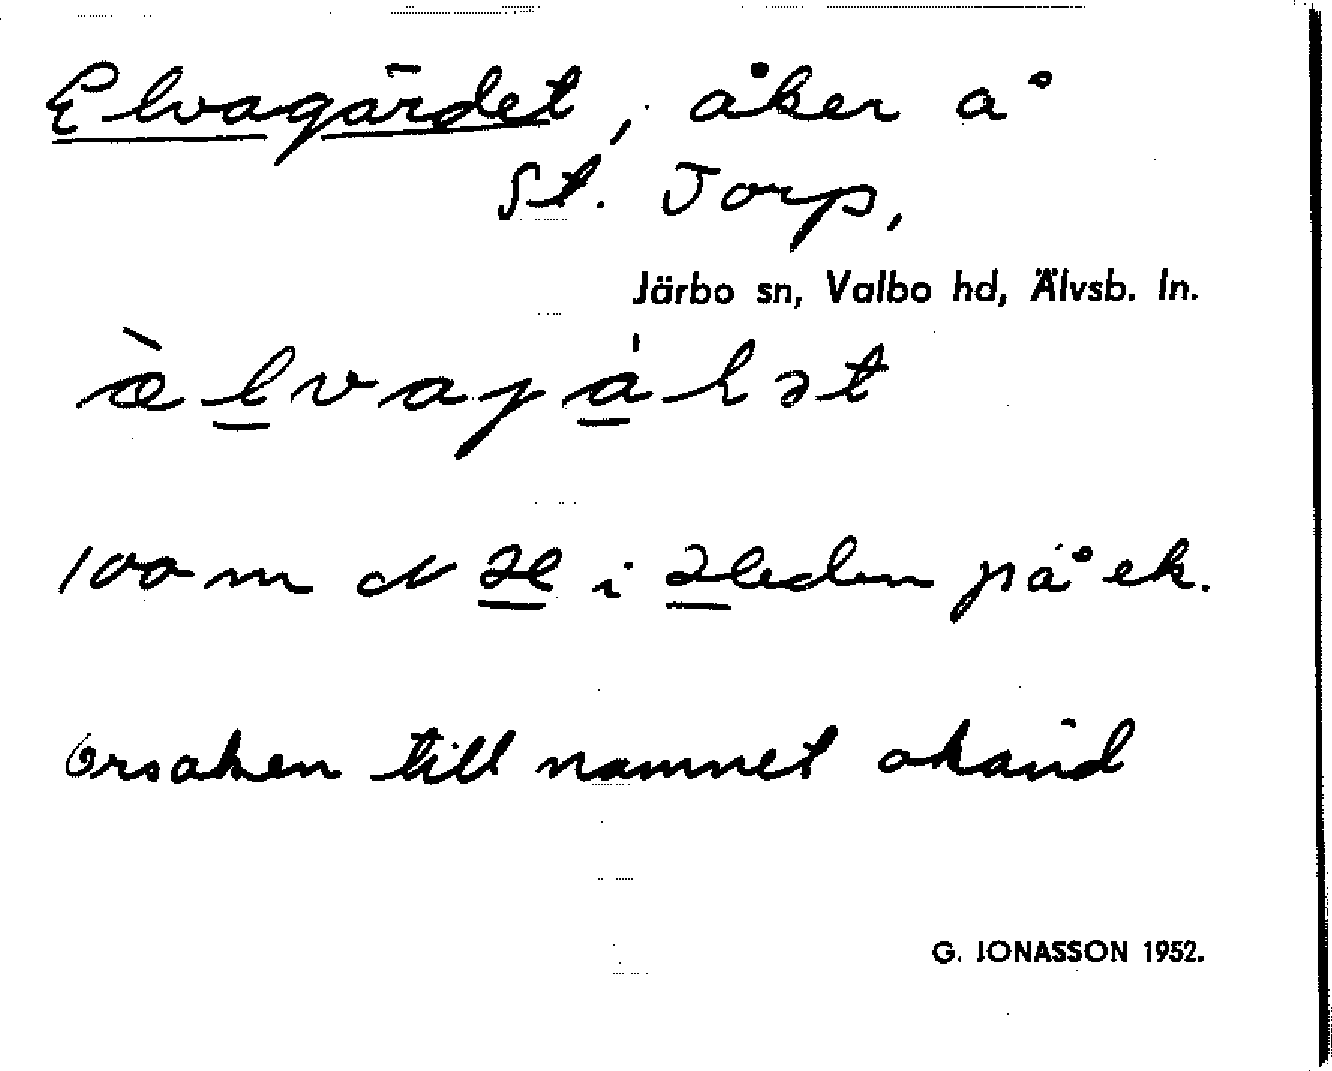 Elvagärdet, åker å
St. Torp,
Järbo sn, Valbo hd, Älvsb. ln.
100 m N
i
på ek.
Orsaken till namnet okänd
G. JONASSON 1952.